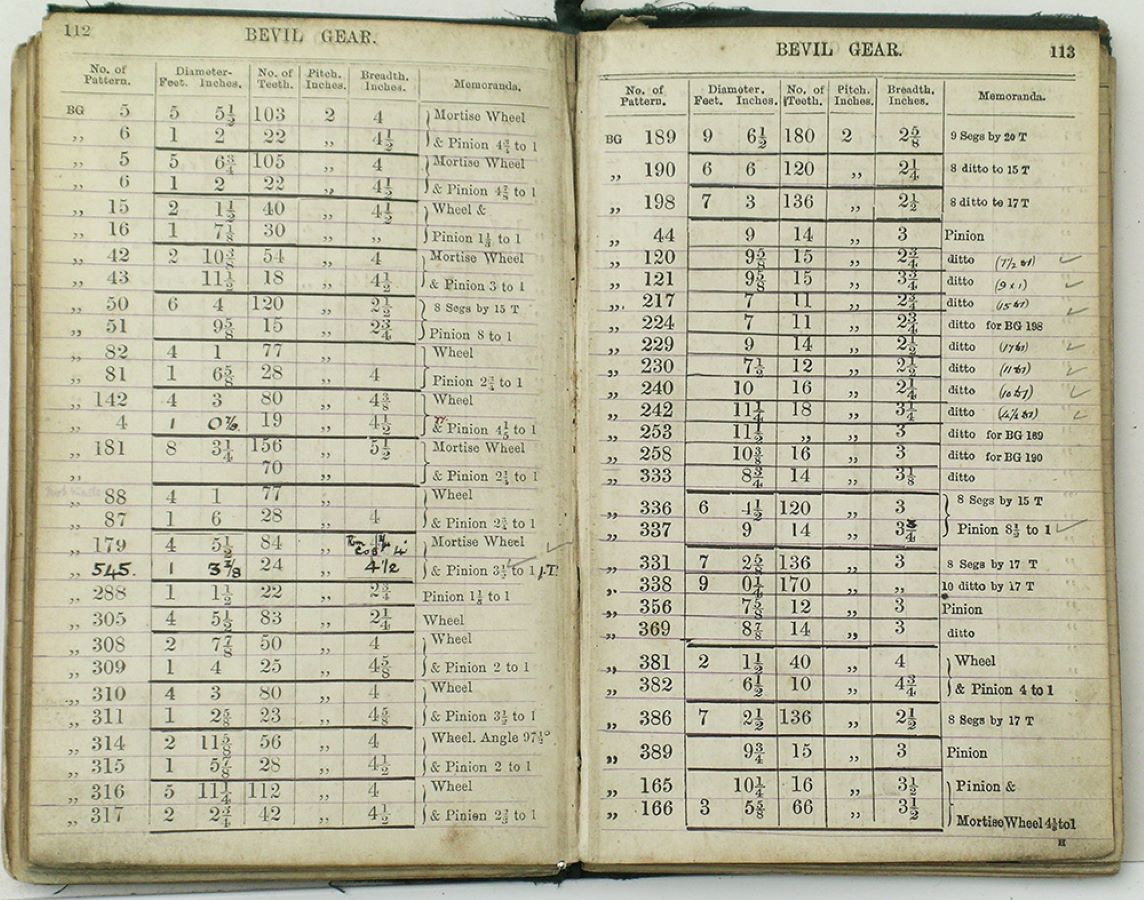 112
BEVIL GEAR.
No. of Pattern. Diameter- Feet. Inches. No. of Teeth. Pitch. Inches. Breadth. Inches. Memoranda.
BG 5 5 5½ 103 2 4 Mortise Wheel
,, 6 1 2 22 ,, 4½ & Pinion 4¾ to 1
,, 5 5 6¾ 105 ,, 4 Mortise Wheel
,, 6 1 2 22 ,, 4½ & Pinion to 1
,, 15 2 1½ 40 ,, 4½ Wheel &
,, 16 1 7⅛ 30 ,, ,, Pinion 1⅓ to 1
,, 42 2 10⅜ 54 ,, 4 Mortise Wheel
,, 43 11½ 18 ,, 4½ & Pinion 3 to 1
,, 50 6 4 120 ,, 2½ 8 Segs by 15 T
,, 51 9⅝ 15 ,, 2¾ Pinion 8 to 1
,, 82 4 1 77 ,, Wheel
,, 81 1 6⅝ 28 ,, 4 Pinion 2¾ to 1
,, 142 4 3 80 ,, 4⅜ Wheel
,, 4 1 0⅞ 19 ,, 4½ & Pinion 4⅕ to 1
,, 181 8 3¼ 156 ,, 5½ Mortise Wheel
70 ,, & Pinion to 1
,, 88 4 1 77 ,, Wheel
,, 87 1 6 28 ,, 4 & Pinion 2¾ to 1
,, 179 4 5½ 84 ,, Cog 4 Mortise Wheel
,, 545. 1 3⅜ 24 ,, 4½ & Pinion 3½ to 1
,, 288 1 1½ 22 ,, 2¾ Pinion 1⅛ to 1
,, 305 4 5½ 83 ,, 2¼ Wheel
,, 308 2 7⅞ 50 ,, 4 Wheel
,, 309 1 4 25 ,, 4⅝ & Pinion 2 to 1
,, 310 4 3 80 ,, 4 Wheel
,, 311 1 2⅝ 23 ,, 4⅝ & Pinion 3½ to 1
,, 314 2 11⅝ 56 ,, 4 Wheel. Angle 97½°
,, 315 1 5⅞ 28 ,, 4½ & Pinion 2 to 1
,, 316 5 11¼ 112 ,, 4 Wheel
,, 317 2 2¾ 42 ,, 4½ & Pinion 2⅔ to 1
BEVIL GEAR.
113
No. of Pattern. Diameter. Feet. Inches. No. of Teeth. Pitch. Inches. Breadth. Inches. Memoranda.
BG 189 9 6½ 180 2 2⅝ 9 Segs by 20 T
,, 190 6 6 120 ,, 2¼ 8 ditto to 15 T
,, 198 7 3 136 ,, 2½ 8 ditto to 17 T
,, 44 9 14 ,, 3 Pinion
,, 120 9⅝ 15 ,, 2¾ ditto (7½ to 1)
,, 121 9⅝ 15 ,, 3¾ ditto (9 x 1)
,, 217 7 11 ,, 2¾ ditto (15 to 1)
,, 224 7 11 ,, 2¾ ditto for BG 198
,, 229 9 14 ,, 2½ ditto (17 to 1)
,, 230 7½ 12 ,, 2½ ditto (11 to 1)
,, 240 10 16 ,, 2¼ ditto (10 to 1)
,, 242 11¼ 18 ,, 3¼ ditto (4½ to 1)
,, 253 11½ ,, ,, 3 ditto for BG 189
,, 258 10⅜ 16 ,, 3 ditto for BG 190
,, 333 8¾ 14 ,, 3⅛ ditto
,, 336 6 4½ 120 ,, 3 8 Segs by 15 T
,, 337 9 14 ,, 3¾ Pinion 8½ to 1
,, 331 7 2⅝ 136 ,, 3 8 Segs by 17 T
,, 338 9 0¼ 170 ,, ,, 10 ditto by 17 T
,, 356 7⅝ 12 ,, 3 Pinion
,, 369 8⅞ 14 ,, 3 ditto
,, 381 2 1½ 40 ,, 4 Wheel
,, 382 6½ 10 ,, 4¾ & Pinion 4 to 1
,, 386 7 2½ 136 ,, 2½ 8 Segs by 17 T
,, 389 9¾ 15 ,, 3 Pinion
,, 165 10¼ 16 ,, 3½ Pinion &
,, 166 3 5⅝ 66 ,, 3½ Mortise Wheel 4⅛ to 1
H